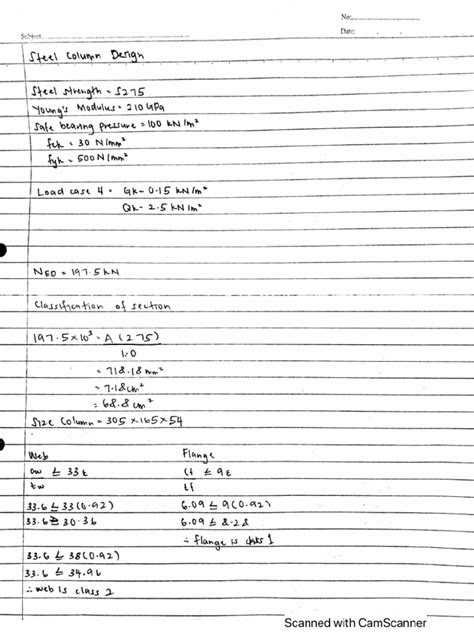 No:
Date:
Subject
Steel Column Design
Steel strength = S275
Young's Modulus = 210 GPa
Safe bearing pressure = 100 kN/m²
fck = 30 N/mm²
fyk = 500 N/mm²
Load case 4 = Gk - 0.15 kN/m²
Qk - 2.5 kN/m²
NED = 197.5 kN
Classification of section
197.5x10³ = A (275)
1.0
= 718.18 mm²
= 7.18 cm²
= 68.8 cm²
Size Column = 305 x 165 x 54
Web Flange
cw ≤ 33ε cf ≤ 9ε
tw tf
33.6 ≤ 33(0.92) 6.09 ≤ 9(0.92)
33.6 ≥ 30.36 6.09 ≤ 8.28
∴ flange is class 1
33.6 ≤ 38(0.92)
33.6 ≤ 34.96
∴ web is class 2
Scanned with CamScanner